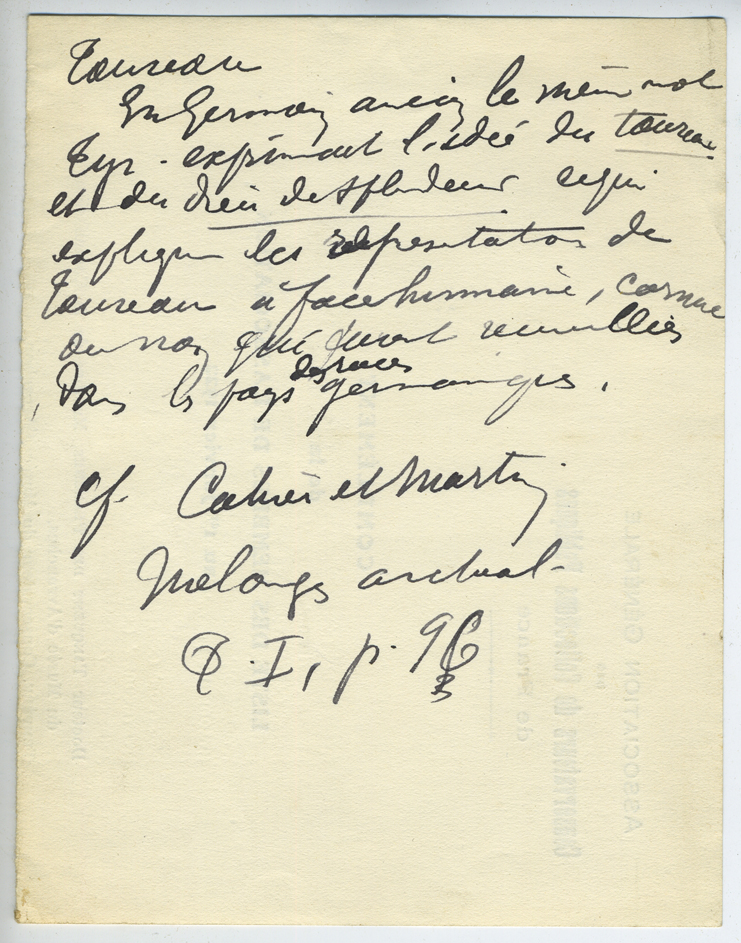 Taureau
En Germain ancien le même mot
Tyr - exprimait l'idée du taureau
et du dieu de splendeur ce qui
explique les représentations de
taureau à face humaine, cornue
ou non, qui furent recueillies
dans les pays des races germaniques.
cf. Cahier et Martin
Mélanges archéol-
T. I, p. 96
ASSOCIATION GENERALE
de France